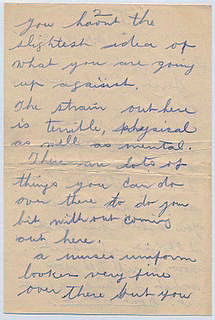 2
You havnt the
slightest idea of
what you are going
up against.
The strain out here
is terrible, physical
as well as mental.
There are lots of
things you can do
over there to do you
bit without coming
out here.
a nurses uniform
lookes very fine
over there but you